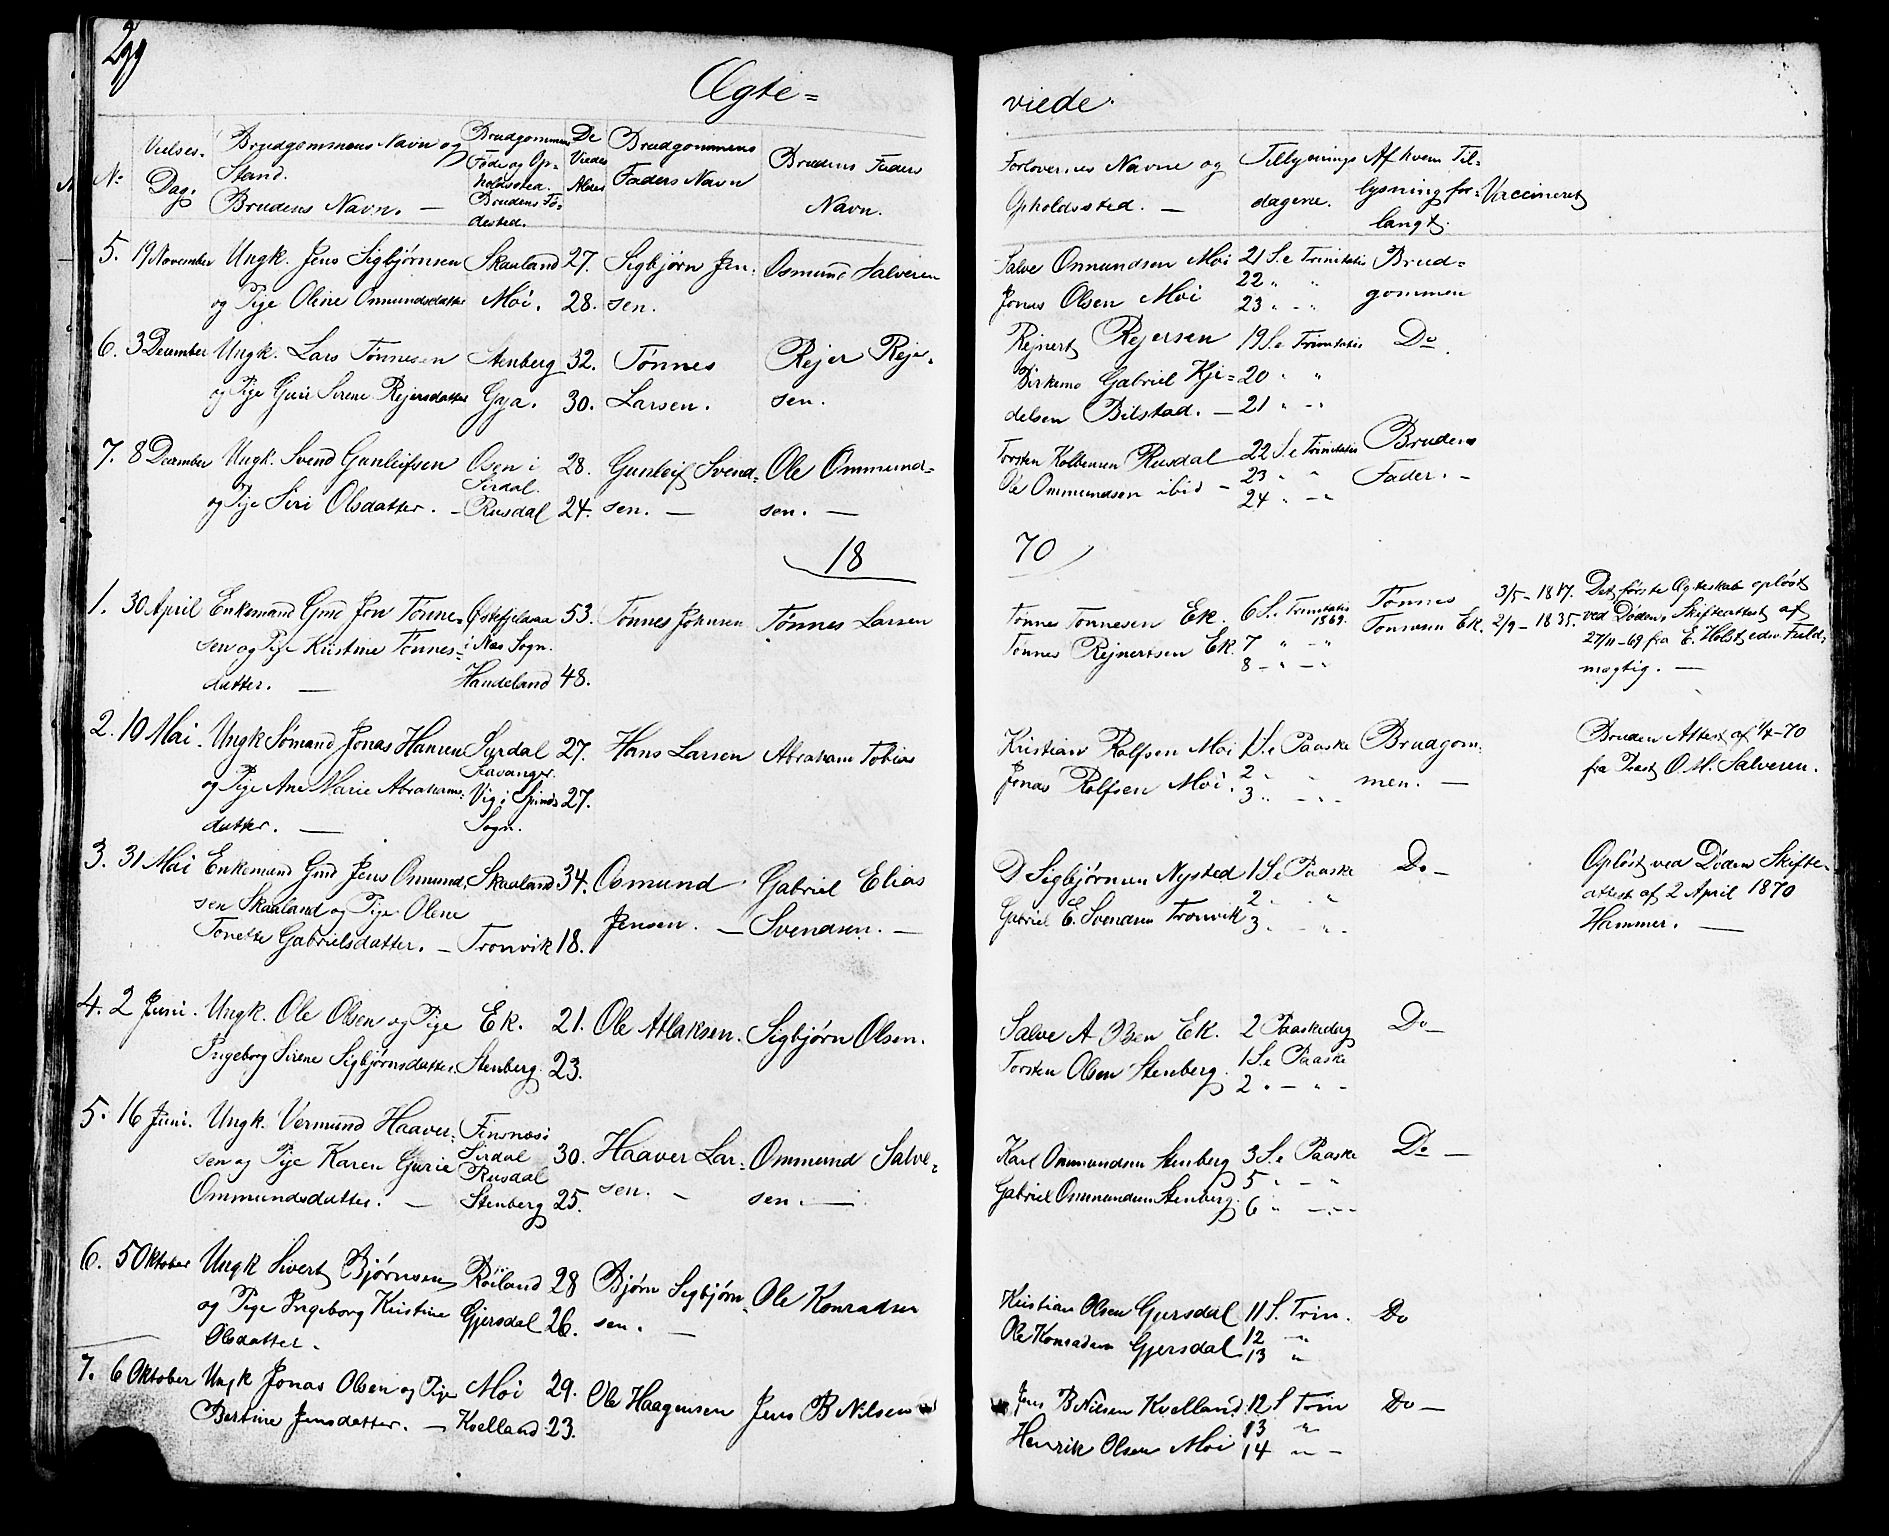 299
Ægte=
viede.
No
Vielses-
Dag.
Brudgommens Navn og
Stand.
Brudens Navn. —
Brudgommens
Føde og Op-
holdssted.
Brudens Fø-
dested.
De
Viedes
Alder
Brudgommens
Faders Navn
Brudens Faders
Navn.
Forlovernes Navne og
Opholdssted. —
Tillysnings
dagene.
Af hvem Til-
lysning for-
langt.
Vaccineret
5. 19 November Ungk. Jens Sigbjørnsen Skaaland 27. Sigbjørn Jen- Osmund Salvesen
og Pige Oline Ommundsdatter Moi. 28. sen.
Salve Ommundsen Moi 21 S. e Trinitatis Brud=
22 " "
Jonas Olsen Moi 23 " - " gommen
6. 3 December Ungk. Lars Tønnesen Stenberg 32. Tønnes Rejer Reje-
og Pige Guri Sirene Rejersdatter Gya. 30. Larsen. sen.
Rejnert Rejersen 19 S. e Trinitatis Do.
Birkemo Gabriel Kje= 20 " "
delsen Bilstad. — 21 " - "
7. 8 December Ungk. Svend Gunleifsen Osen i 28. Gunleif Svend- Ole Ommund-
Sirdal.
og Pige Siri Olsdatter. — Rusdal 24. sen. — sen. —
Torsten Kolbensen Rusdal 22 S. e Trinitatis Brudens
23 " "
Ole Ommundsen ibid — 24 " - " Fader. -
18
70
1. 30 April Enkemand Gmd Jon Tønne- Østefjelaaa 53. Tønnes Johnsen Tønnes Larsen
sen og Pige Kristine Tønnes- i Næs Sogn.
datter. — Haudeland 48.
Tønnes Tønnesen Ek. 6 S. e Trinitatis 1869. Tønnes 3/5 - 1817. Det første Ægteskab opløst
Tønnes Rejnertsen Ek. 7 " - " Tønnesen Ek. 2/9 - 1835. ved Døden, Skifteattest af
8 - " - " 27/11-69 fra E. Holst, edsv. Fuld-
mægtig. —
2. 10 Mai. Ungk Sømand Jonas Hansen Surdal 27. Hans Larsen Abraham Tobias
Stavanger.
og Pige Ane Marie Abrahams- Vig i Spinds 27.
datter. — Sogn.
Kristian Rolfsen Moi 1 S. e Paaske Brudgom-
2 " "
Jonas Rolfsen Moi. 3 " - " men. —
Bruden Attest af 1/4-70
fra Præst O. M. Salvesen.
3. 31 Mai Enkemand Gmd Jens Osmund- Skaaland 34. Osmund Gabriel Elias
sen Skaaland og Pige Olene
Tonette Gabrielsdatter. — Tronvik 18. Jensen. — Svendsen. —
D Sigbjørnsen Nysted 1 S. e Paaske Do —
2 " "
Gabriel E. Svendsen Tronvik 3 " - " -
Opløst ved Døden Skifte-
attest af 2 April 1870
Hammer. —
4. 2 Juni. Ungk. Ole Olsen og Pige Ek. 21. Ole Atlaksen. Sigbjørn Olsen.
Ingeborg Sirene Sigbjørnsdatter. Stenberg. 23.
Salve A Olsen Ek. 2 Paaskedag Do —
Torsten Olsen Stenberg. 1 S. e Paaske
2 " - " -
5. 16 Juni. Ungk. Vermund Haaver- Finsnæs i
sen og Pige Karen Gurie Sirdal 30. Haaver Lar- Ommund Salve-
Rusdal
Ommundsdatter. — Stenberg 25. sen. - sen. —
Karl Ommundsen Stenberg 3 S. e Paaske Do —
5 " - "
Gabriel Ommundsen Stenberg. 6 " - " - -
6. 5 Oktober Ungk Sivert Bjørnsen Røiland 28 Bjørn Sigbjørn- Ole Konradsen
og Pige Ingeborg Kristine Gjersdal 26. sen. —
Olsdatter.
Kristian Olsen Gjersdal 11 S. Trin. Do
12 "
Ole Konradsen Gjersdal 13 "
7. 6 Oktober Ungk Jonas Olsen og Pige Moi 29. Ole Haagensen Jens B Nilsen
Bertine Jensdatter. — Kvelland 23.
Jens B Nilsen Kvelland. 12 S Trin Do —
13 "
Henrik Olsen Moi 14 " -